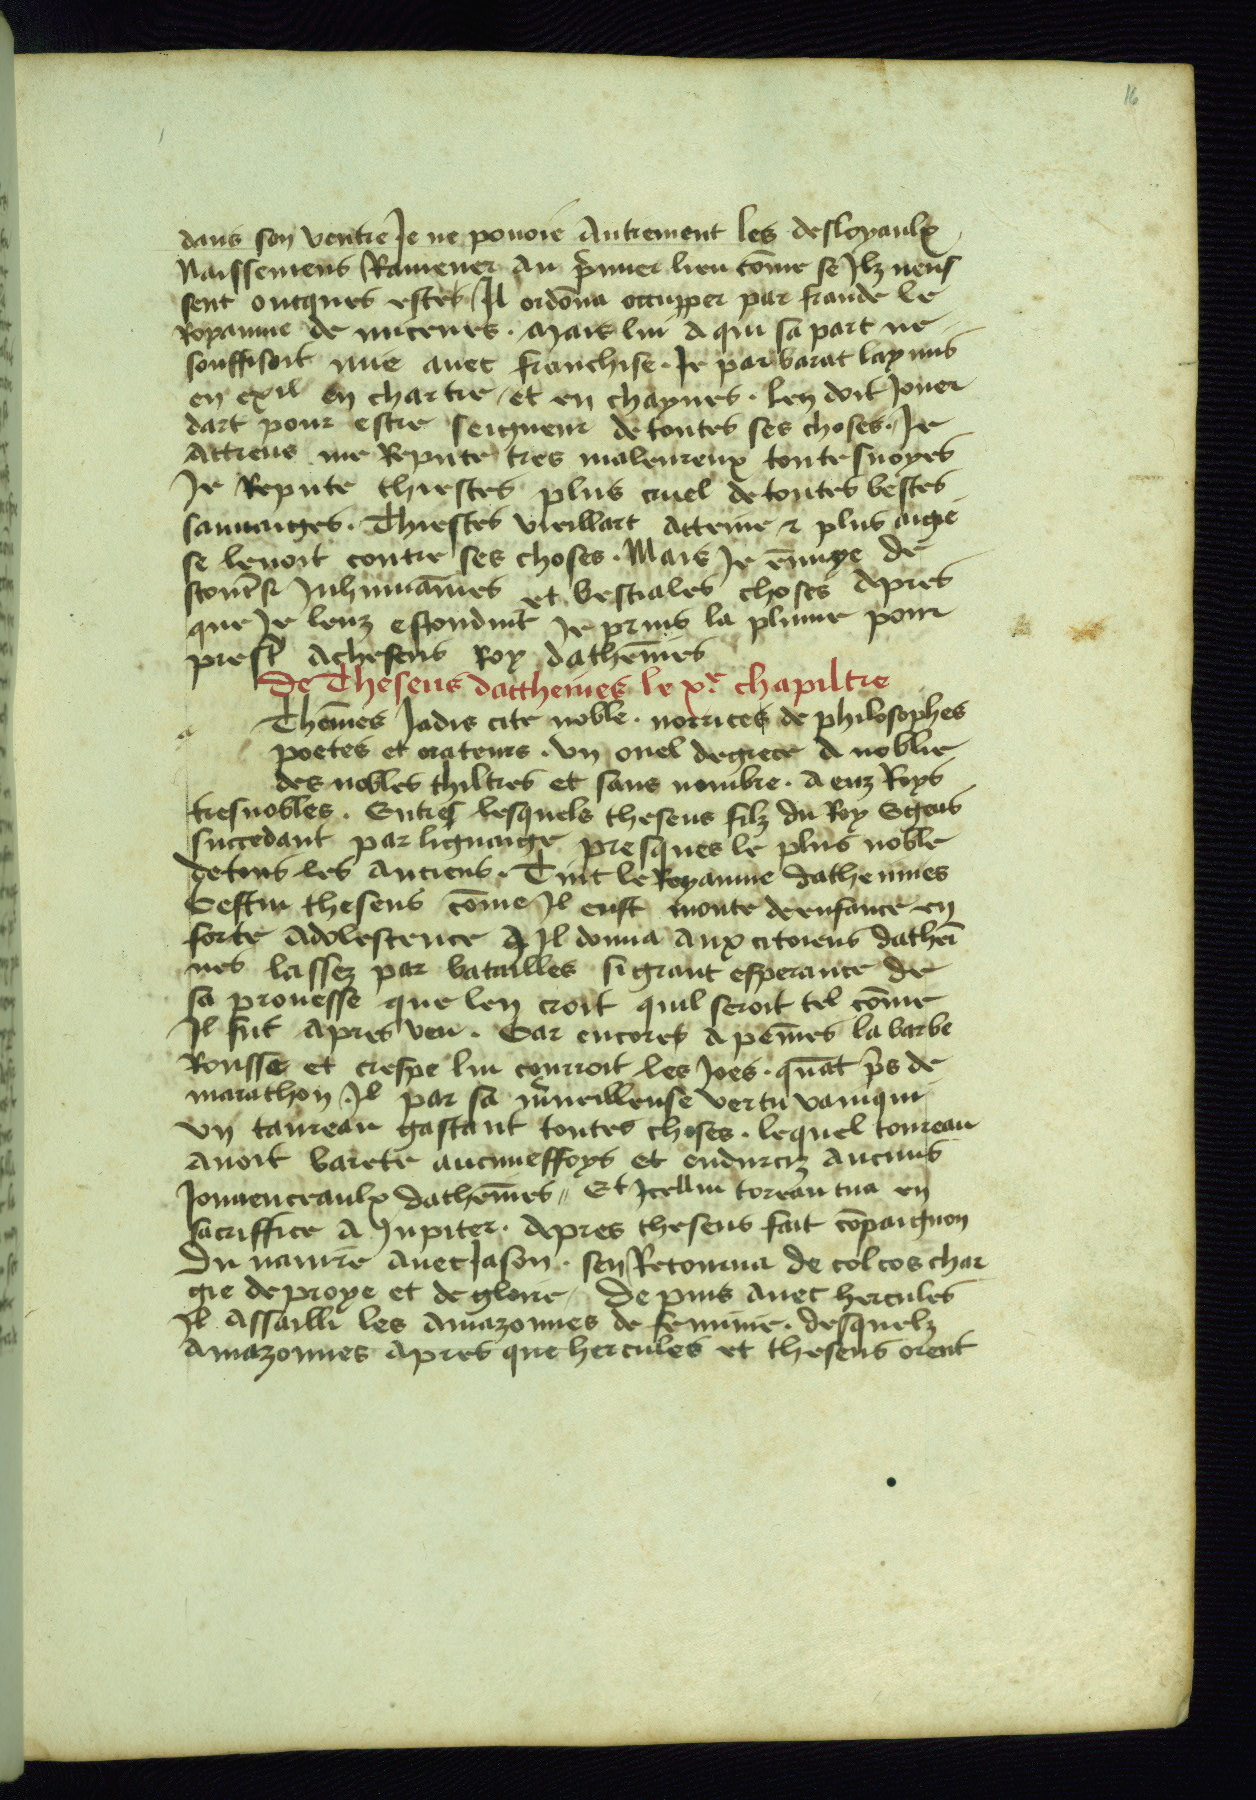 16
dans son ventre Je ne pouoie Autrement les desloyaulx
Naissemens Ramener Au p̃mier lieu cõme se Jlz neus
sent oncques estes Il ordõna occupper par fraude le
Royaume de micenes . Mais lui A qui sa part ne
souffisoit mie auec franchise . Je par barat lay mis
en exil en chartre / et en chaynes . len doit Jouer
dart pour estre seigneur de toutes ses choses . Je
Attreus me Repute tres maleureux toutesuoyes
Je Repute thiestes plus cruel de toutes bestes
sauuaiges . Thiestes vieillart Attenue & plus aigre
se leuoit contre ses choses . Mais Je ẽnuye de
si Inhumaĩnes et bestiales choses Apres
que Je leuz esconduit Je prins la plume pour
Atheseus Roy dathẽnies
De Theseus datthenies le xe chapiltre
a Thẽnies Jadis cite noble . norrices de philosophes
poetes et orateurs . vn ouel degrece A noblie
des nobles thiltres et sans nombre . A euz Roys
tresnobles . Entres lesquels theseus filz du Roy Egeus
succedant par lignaige presques le plus noble
detous les Anciens . Tint le Royaume dathennies
Cestui theseus cõme Jl eust monte de enfance en
forte Adolescence Il donna Aux citoiens dathẽi
nes lassez par batailles si grant esperance de
sa prouesse que len croit quil seroit tel cõme
Jl fut Apres veu . Car encores A pẽines la barbe
Rousse et crespe lui courroit les Joes . quãt p̃s de
marathon Jl par sa m̃ueilleuse vertu vainqui
vn taureau gastant toutes choses . lequel toureau
auoit barete aucuneffoys et endurciz Aucuns
Jouuenceaulx dathẽnies // Et Jcellui toreau tua en
sacriffice A Jupiter . Apres theseus fait cõpaignon
Du nauire Auec Jason . sen Retourna de colcos char
gie de proye et de gloire / De puis Auec hercules
Il Assailli les Amazonnes de femnie . desquelz
Amazonnes Apres que hercules et theseus orent